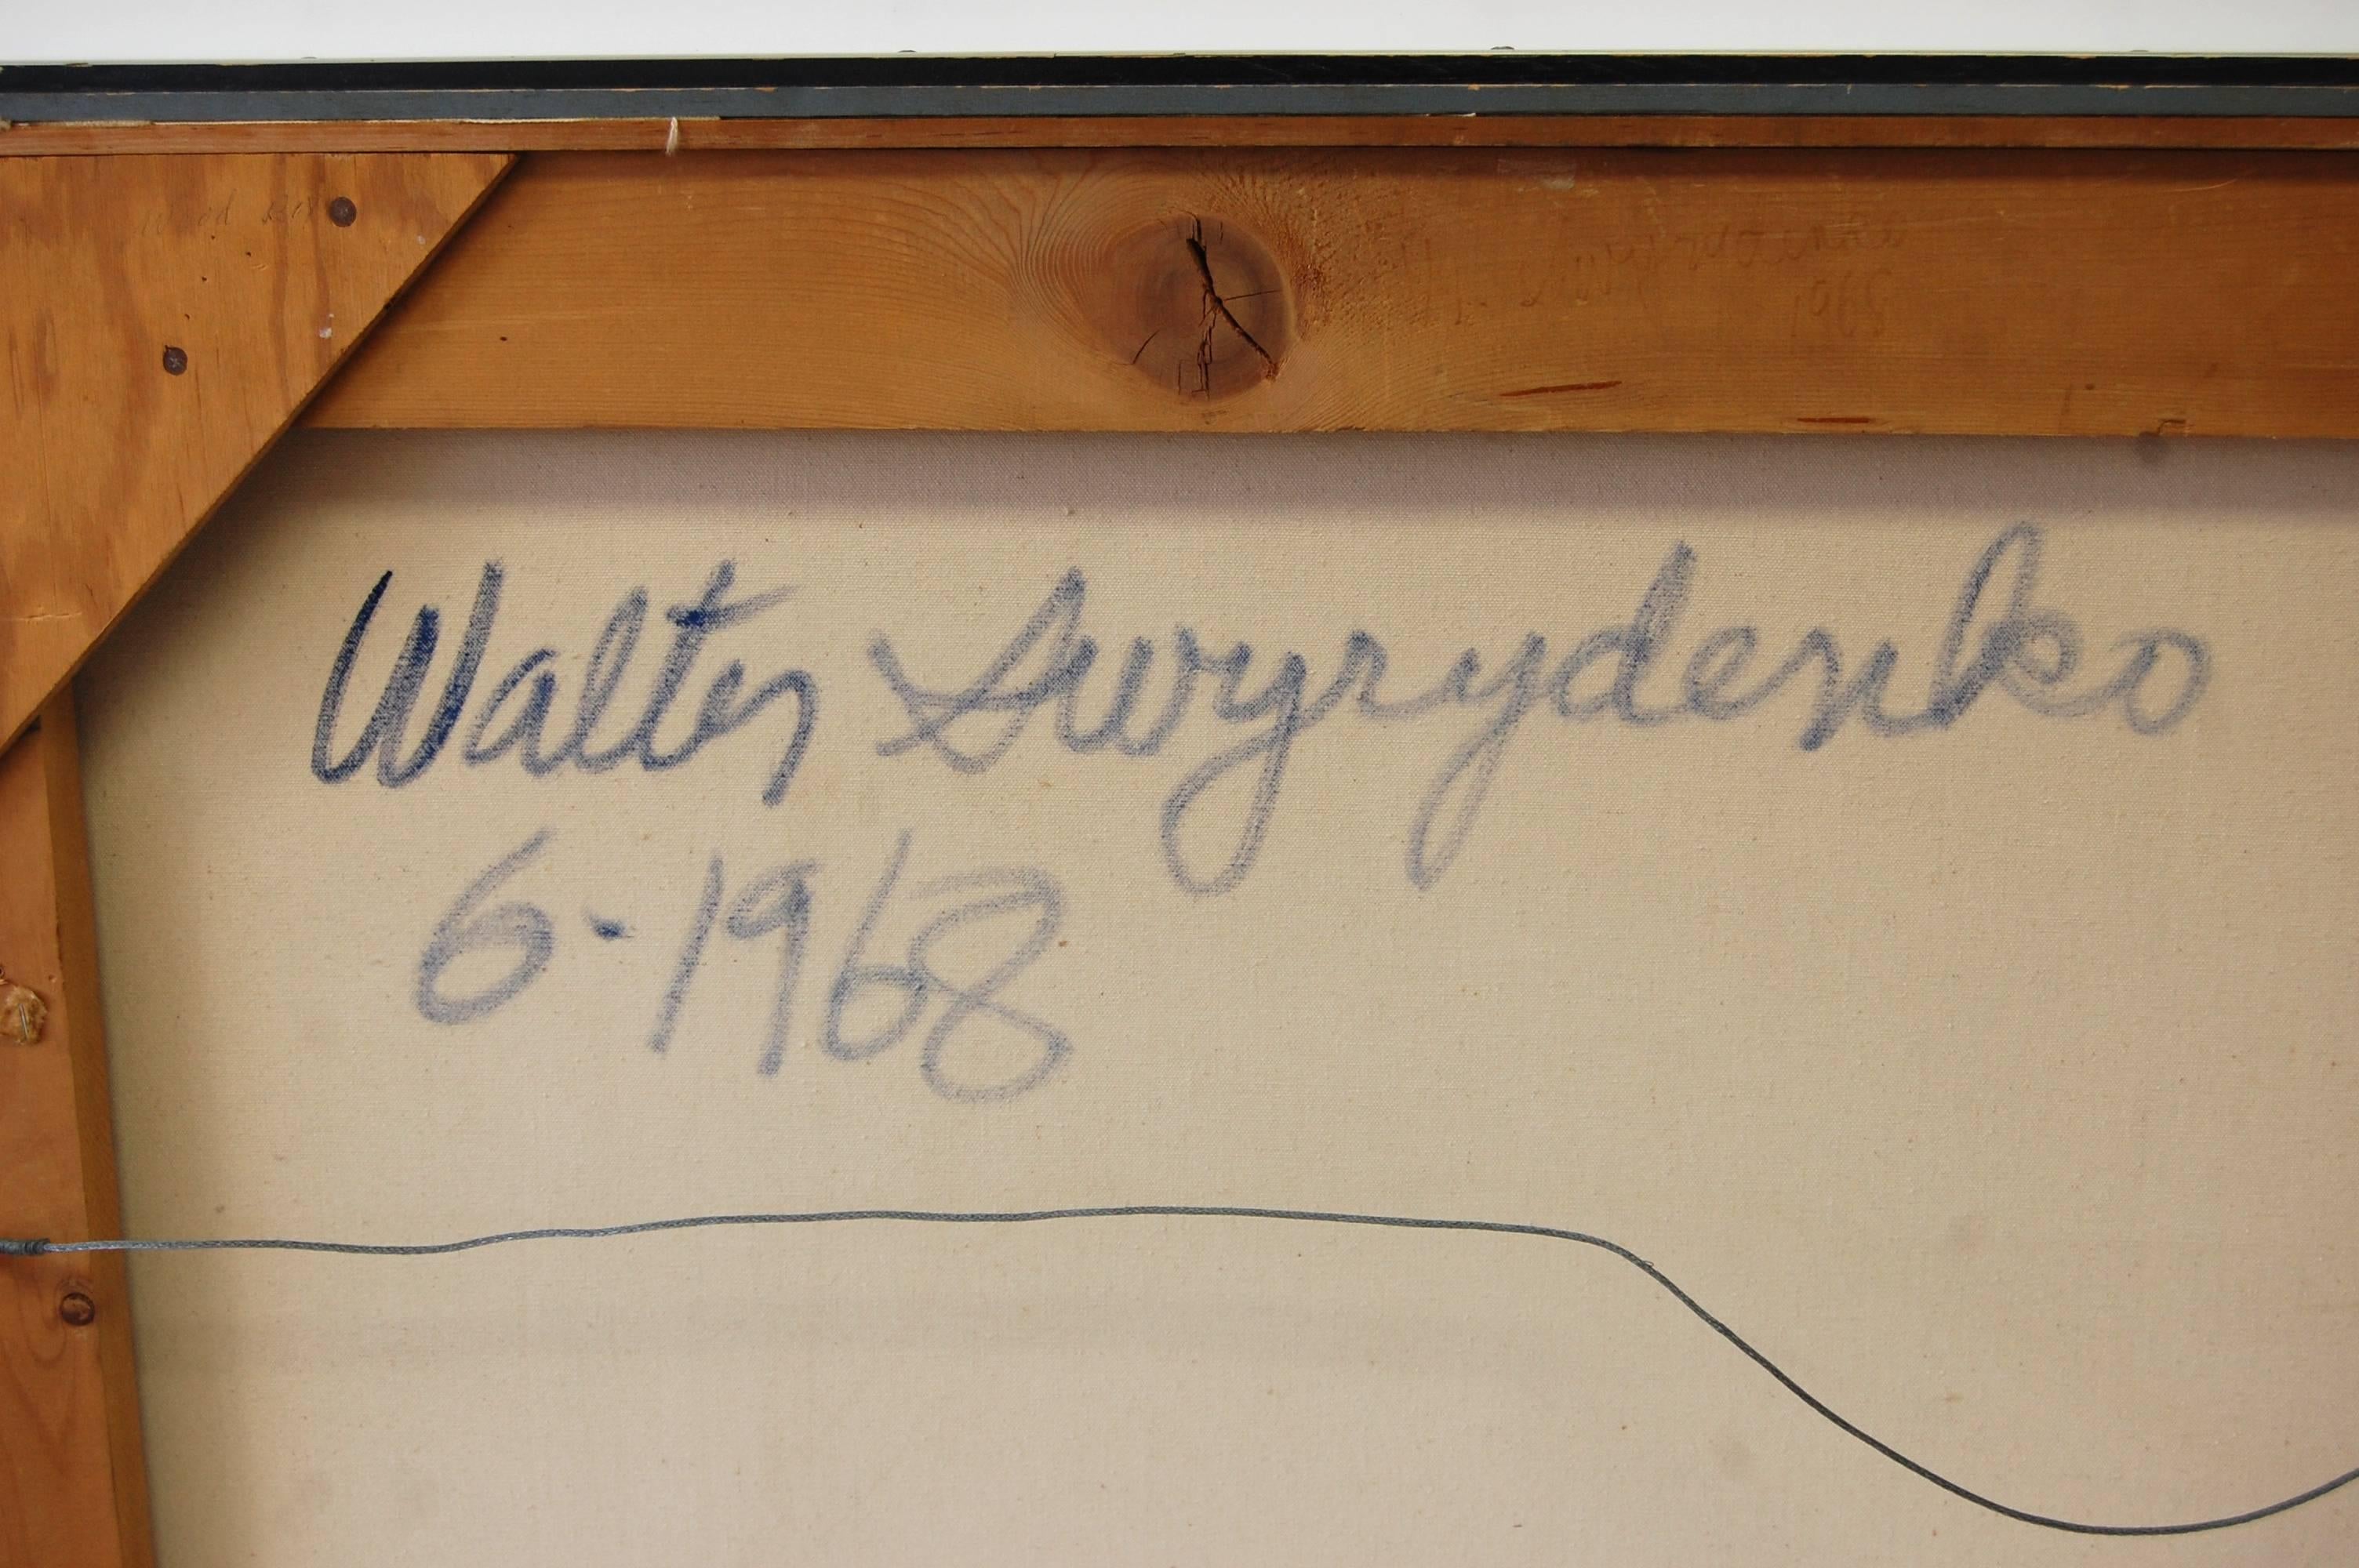 Walter Swyrydenko
6-1968